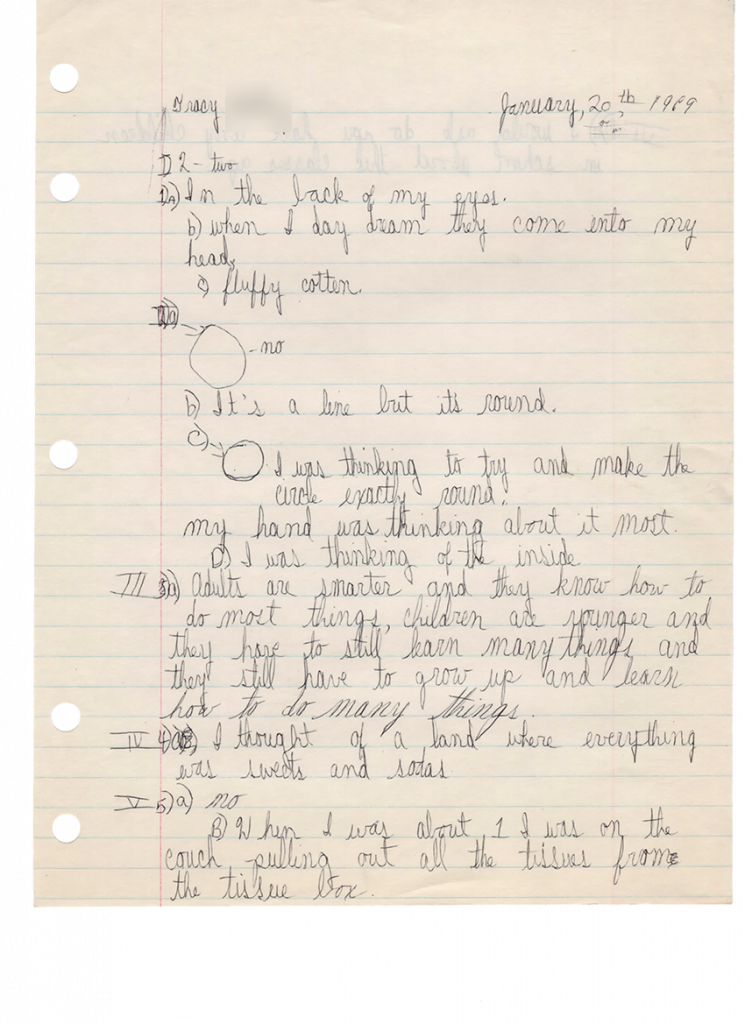 Tracy
January, 20th, 1989
II 2 - two
1a) In the back of my eyes.
b) when I day dream they come ento my
head,
c) fluffy cotten.
a)
- no
b) It's a line but it's round.
c)
I was thinking to try and make the
circle exactly round.
my hand was thinking about it most.
D) I was thinking of the inside
III 3a) Adults are smarter and they know how to
do most things, children are younger and
they have to still learn many things and
they still have to grow up and learn
how to do many things.
IV 4) I thought of a land where everything
was sweets and sodas.
V 5) a) no
B) When I was about 1 I was on the
couch pulling out all the tissues from
the tissue box.